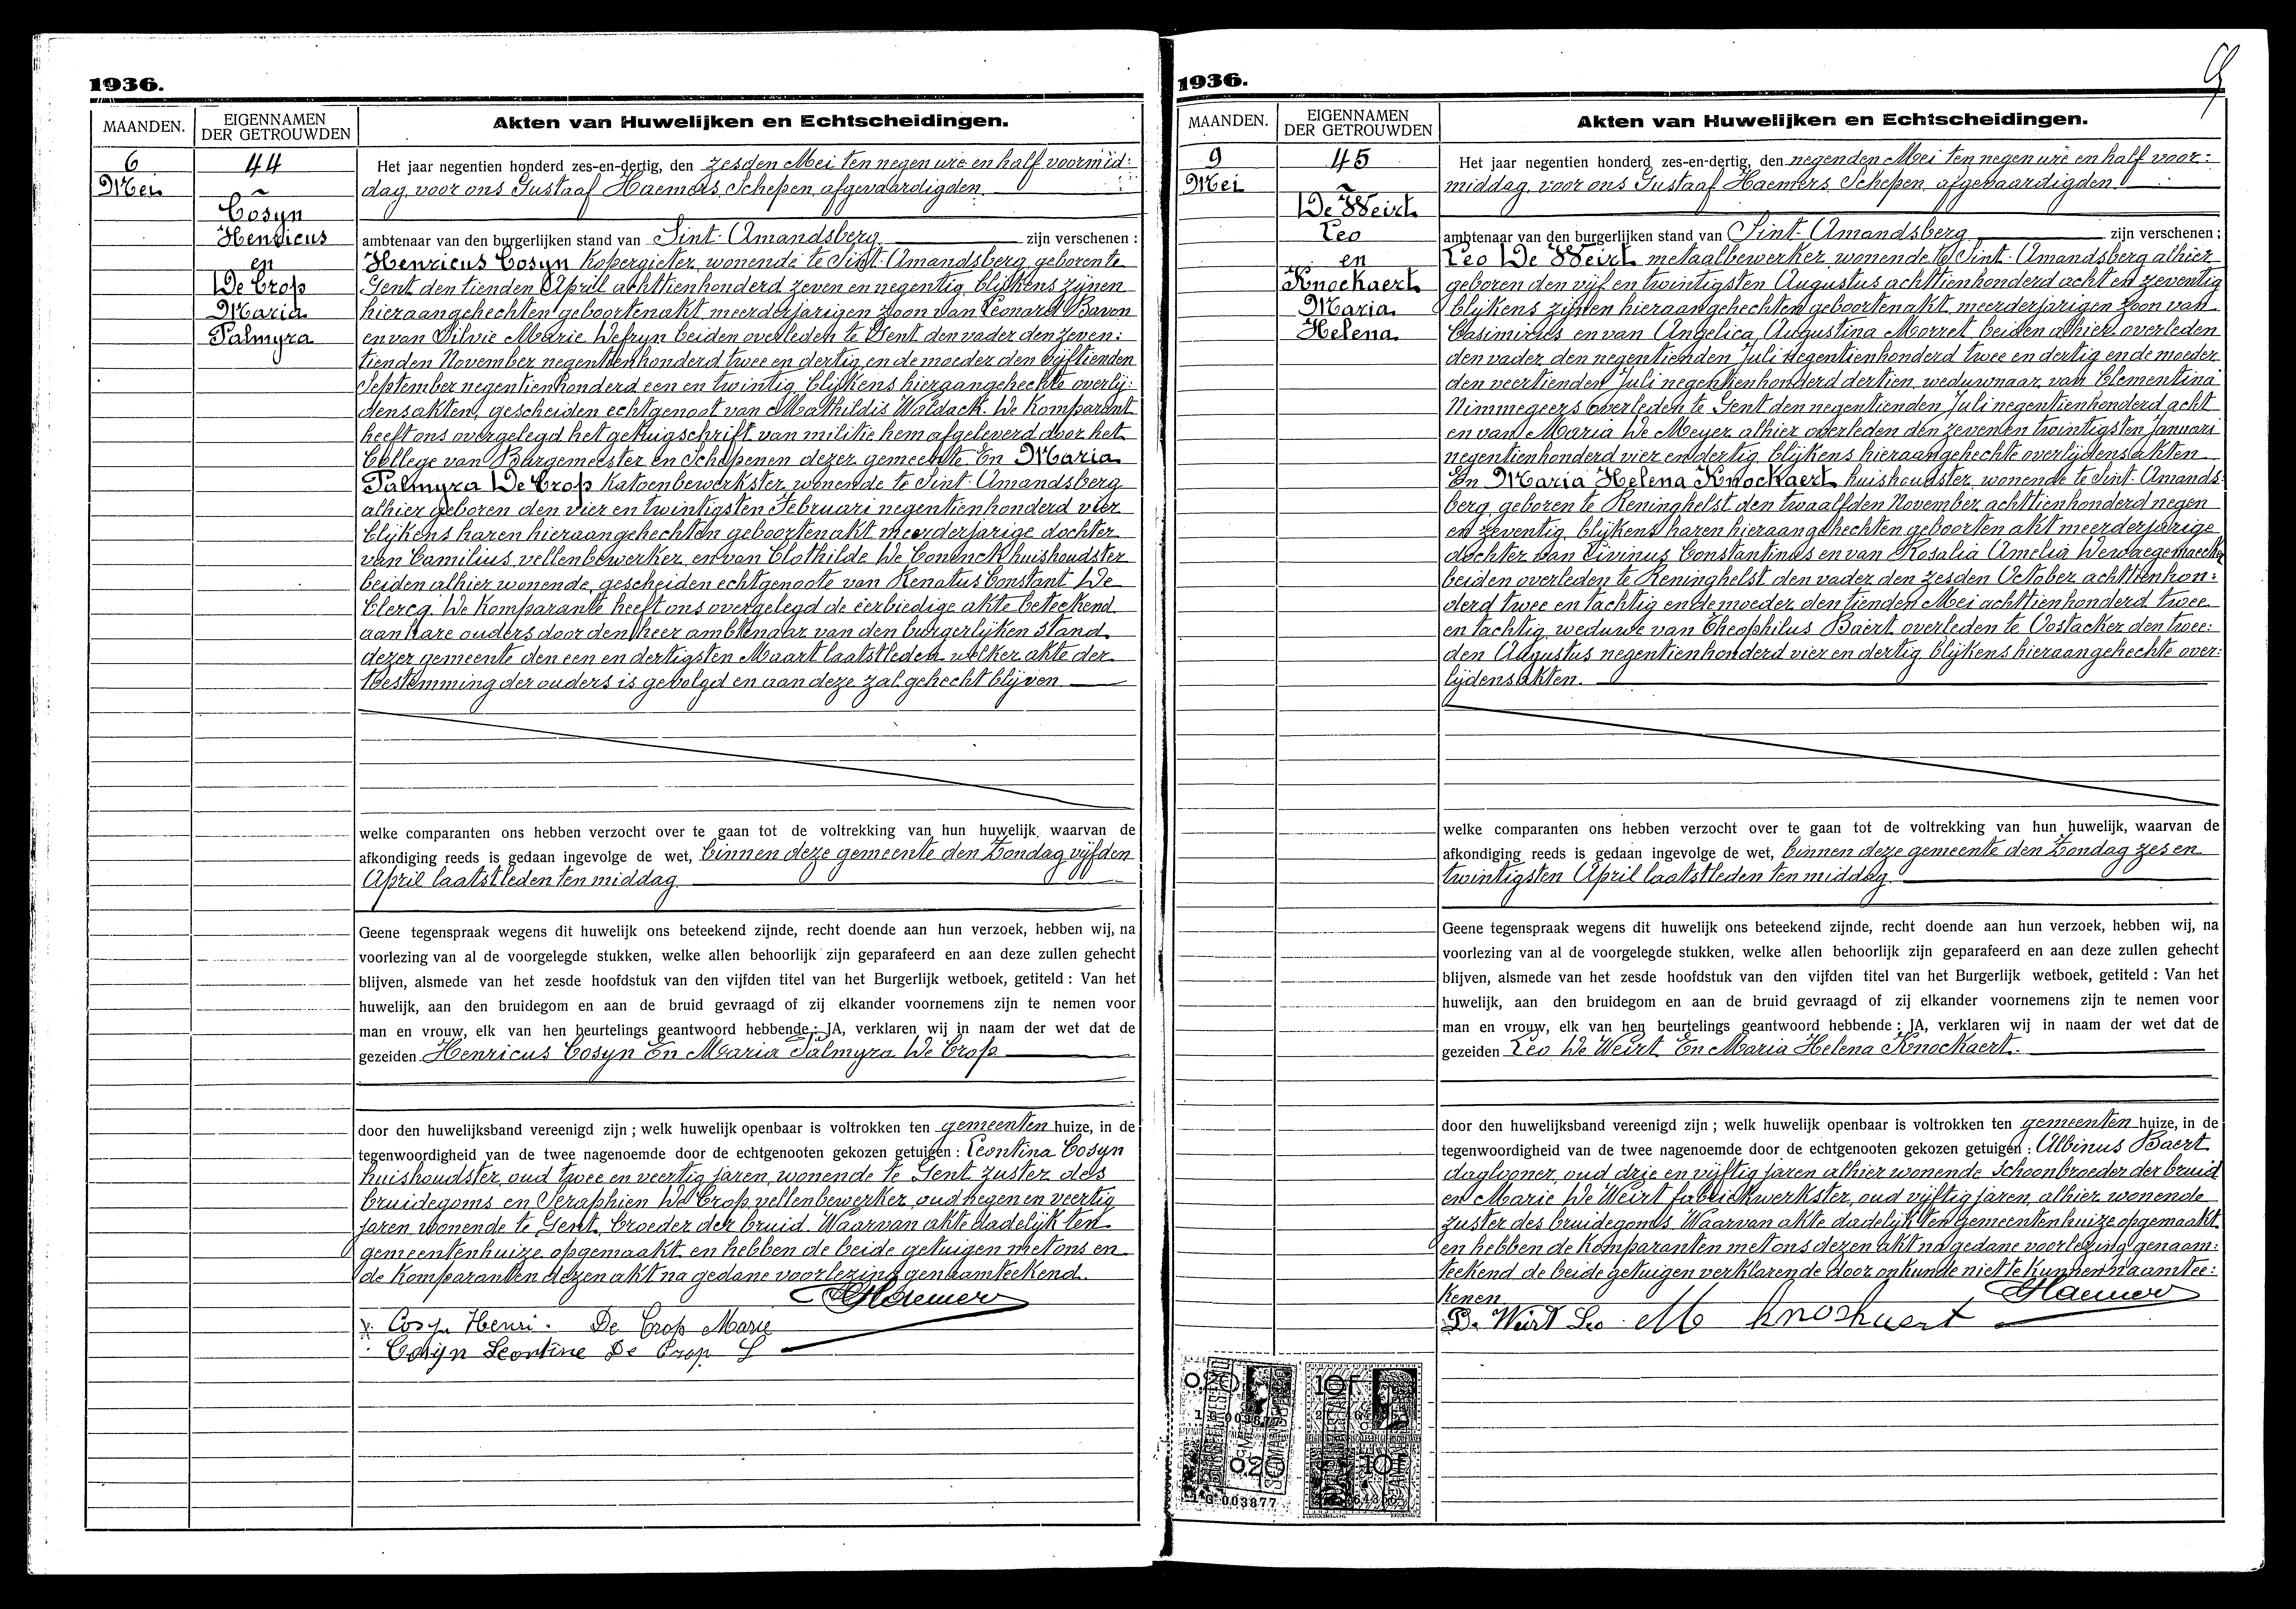 1936.
MAANDEN.
EIGENNAMEN
DER GETROUWDEN
Akten van Huwelijken en Echtscheidingen.
6
Mei
44
Cosyn
Henricus
en
De Crop
Maria
Palmyra
Het jaar negentien honderd zes-en-dertig, den zesden Mei ten negen ure en half voormid:
dag, voor ons Gustaaf Haemers, Schepen, afgevaardigden
ambtenaar van den burgerlijken stand van Sint-Amandsberg zijn verschenen :
Henricus Cosyn kopergieter, wonende te Sint-Amandsberg, geboren te
Gent den tienden April achttienhonderd zeven en negentig, blijkens zijnen
hieraangehechten geboortenakt, meerderjarigen zoon van Leonard Bavon
en van Silvie Marie Defryn beiden overleden te Gent, den vader den zeven:
tienden November negentienhonderd twee en dertig, en de moeder den vijftienden
September negentienhonderd een en twintig, blijkens hieraangehechte overlij:
densakten, gescheiden echtgenoot van Mathildis Waldack. De Komparant
heeft ons overgelegd het getuigschrift van militie hem afgeleverd door het
College van Burgemeester en Schepenen dezer gemeente. En Maria
Palmyra De Crop katoenbewerkster, wonende te Sint-Amandsberg
alhier geboren den vier en twintigsten Februari negentienhonderd vier
blijkens haren hieraangehechten geboortenakt meerderjarige dochter
van Camilius, vellenbewerker, en van Clothilde De Coninck huishoudster
beiden alhier wonende, gescheiden echtgenoote van Renatus Constant De
Clercq. De Komparante heeft ons overgelegd de eerbiedige akte beteekend
aan hare ouders door den heer ambtenaar van den burgerlijken stand
dezer gemeente den een en dertigsten Maart laatstleden welker akte der
toestemming der ouders is gevolgd en aan deze zal gehecht blijven
welke comparanten ons hebben verzocht over te gaan tot de voltrekking van hun huwelijk, waarvan de
afkondiging reeds is gedaan ingevolge de wet, binnen deze gemeente den Zondag vijfden
April laatstleden ten middag.
Geene tegenspraak wegens dit huwelijk ons beteekend zijnde, recht doende aan hun verzoek, hebben wij, na
voorlezing van al de voorgelegde stukken, welke allen behoorlijk zijn geparafeerd en aan deze zullen gehecht
blijven, alsmede van het zesde hoofdstuk van den vijfden titel van het Burgerlijk wetboek, getiteld : Van het
huwelijk, aan den bruidegom en aan de bruid gevraagd of zij elkander voornemens zijn te nemen voor
man en vrouw, elk van hen beurtelings geantwoord hebbende : JA, verklaren wij in naam der wet dat de
gezeiden Henricus Cosyn En Maria Palmyra De Crop
door den huwelijksband vereenigd zijn ; welk huwelijk openbaar is voltrokken ten gemeenten huize, in de
tegenwoordigheid van de twee nagenoemde door de echtgenooten gekozen getuigen : Leontina Cosyn
huishoudster, oud twee en veertig jaren, wonende te Gent, zuster des
bruidegoms en Seraphien De Crop, vellenbewerker, oud negen en veertig
jaren wonende te Gent, broeder der bruid. Waarvan akte dadelijk ten
gemeentenhuize opgemaakt en hebben de beide getuigen met ons en
de Komparanten dezen akt na gedane voorlezing genaamteekend.
Haemers
Cosyn Henri. De Crop Marie
Cosyn Leontine De Crop S
1936.
9
MAANDEN.
EIGENNAMEN
DER GETROUWDEN
Akten van Huwelijken en Echtscheidingen.
9
Mei
45
De Weirt
Leo
en
Knockaert
Maria
Helena
Het jaar negentien honderd zes-en-dertig, den negenden Mei ten negen ure en half voor:
middag, voor ons Gustaaf Haemers, Schepen, afgevaardigden
ambtenaar van den burgerlijken stand van Sint-Amandsberg zijn verschenen ;
Leo De Weirt metaalbewerker, wonende te Sint-Amandsberg alhier
geboren den vijf en twintigsten Augustus achttienhonderd acht en zeventig
blijkens zijnen hieraangehechten geboortenakt, meerderjarigen zoon van
Casimirus en van Angelica Augustina Morret, beiden alhier overleden
den vader den negentienden Juli negentienhonderd twee en dertig en de moeder
den veertienden Juli negentienhonderd dertien, weduwnaar van Clementina
Nimmegeers overleden te Gent den negentienden Juli negentienhonderd acht
en van Maria De Meyer alhier overleden den zeven en twintigsten Januari
negentienhonderd vier en dertig, blijkens hieraangehechte overlijdensakten
En Maria Helena Knockaert, huishoudster, wonende te Sint-Amands:
berg, geboren te Reninghelst den twaalfden November achttienhonderd negen
en zeventig, blijkens haren hieraangehechten geboorten akt meerderjarige
dochter van Livinus Constantinus en van Rosalia Amelia Dewaegemaecker
beiden overleden te Reninghelst, den vader den zesden October achttienhon:
derd twee en tachtig en de moeder den tienden Mei achttienhonderd twee
en tachtig, weduwe van Theophilus Baert overleden te Oostacker den twee:
den Augustus negentienhonderd vier en dertig, blijkens hieraangehechte over:
lijdensakten.
welke comparanten ons hebben verzocht over te gaan tot de voltrekking van hun huwelijk, waarvan de
afkondiging reeds is gedaan ingevolge de wet, binnen deze gemeente den Zondag zes en
twintigsten April laatstleden ten middag.
Geene tegenspraak wegens dit huwelijk ons beteekend zijnde, recht doende aan hun verzoek, hebben wij, na
voorlezing van al de voorgelegde stukken, welke allen behoorlijk zijn geparafeerd en aan deze zullen gehecht
blijven, alsmede van het zesde hoofdstuk van den vijfden titel van het Burgerlijk wetboek, getiteld : Van het
huwelijk, aan den bruidegom en aan de bruid gevraagd of zij elkander voornemens zijn te nemen voor
man en vrouw, elk van hen beurtelings geantwoord hebbende : JA, verklaren wij in naam der wet dat de
gezeiden Leo De Weirt En Maria Helena Knockaert.
door den huwelijksband vereenigd zijn ; welk huwelijk openbaar is voltrokken ten gemeenten huize, in de
tegenwoordigheid van de twee nagenoemde door de echtgenooten gekozen getuigen : Albinus Baert
daglooner, oud drie en vijftig jaren, alhier wonende, schoonbroeder der bruid
en Marie De Weirt fabriekwerkster, oud vijftig jaren, alhier wonende
zuster des bruidegoms. Waarvan akte dadelijk ten gemeentenhuize opgemaakt
en hebben de Komparanten met ons dezen akt na gedane voorlezing genaam:
teekend de beide getuigen verklarende door onkunde niet te kunnen naamtee:
kenen.
Haemers
De Weirt Leo M Knockaert
0.20
10F
0.20
10F
1 G 003877